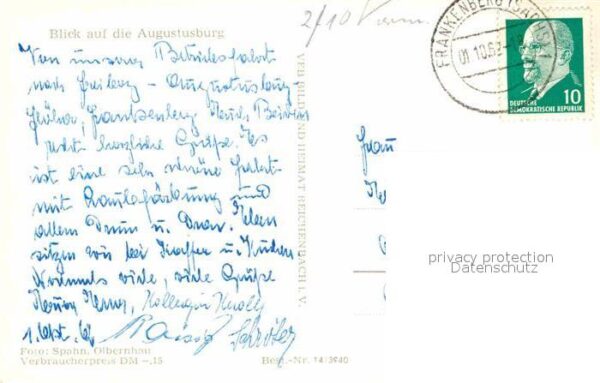 Blick auf die Augustusburg
2/10 Verm.
FRANKENBERG (SACHS)
01.10.6
DEUTSCHE
DEMOKRATISCHE REPUBLIK
10
Von unserer Betriebsfahrt
nach Freiberg - Augustusburg -
Flöha, Frankenberg
herzliche Grüße. Es
ist eine sehr schöne Fahrt
mit Laubfärbung und
allem Drum u. Dran. Eben
sitzen wir bei Kaffee u. Kuchen
Nochmals viele, viele Grüße
Kollegin
1. Okt. 6
Schröter
VEB BILD UND HEIMAT REICHENBACH I. V.
Frau
privacy protection
Datenschutz
Foto: Spahn, Olbernhau
Verbraucherpreis DM -,15
Best.-Nr. 14/3940